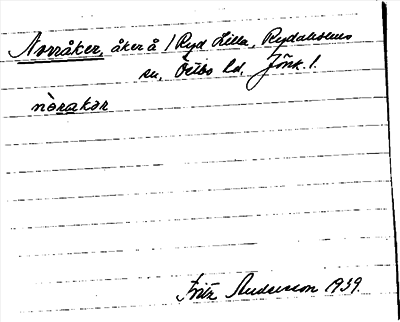 Norråker, åker å 1 Ryd Lilla, Rydaholms
sn, Östbo hd, Jönk. l.
nòrakər
Fritz Andersson 1939.